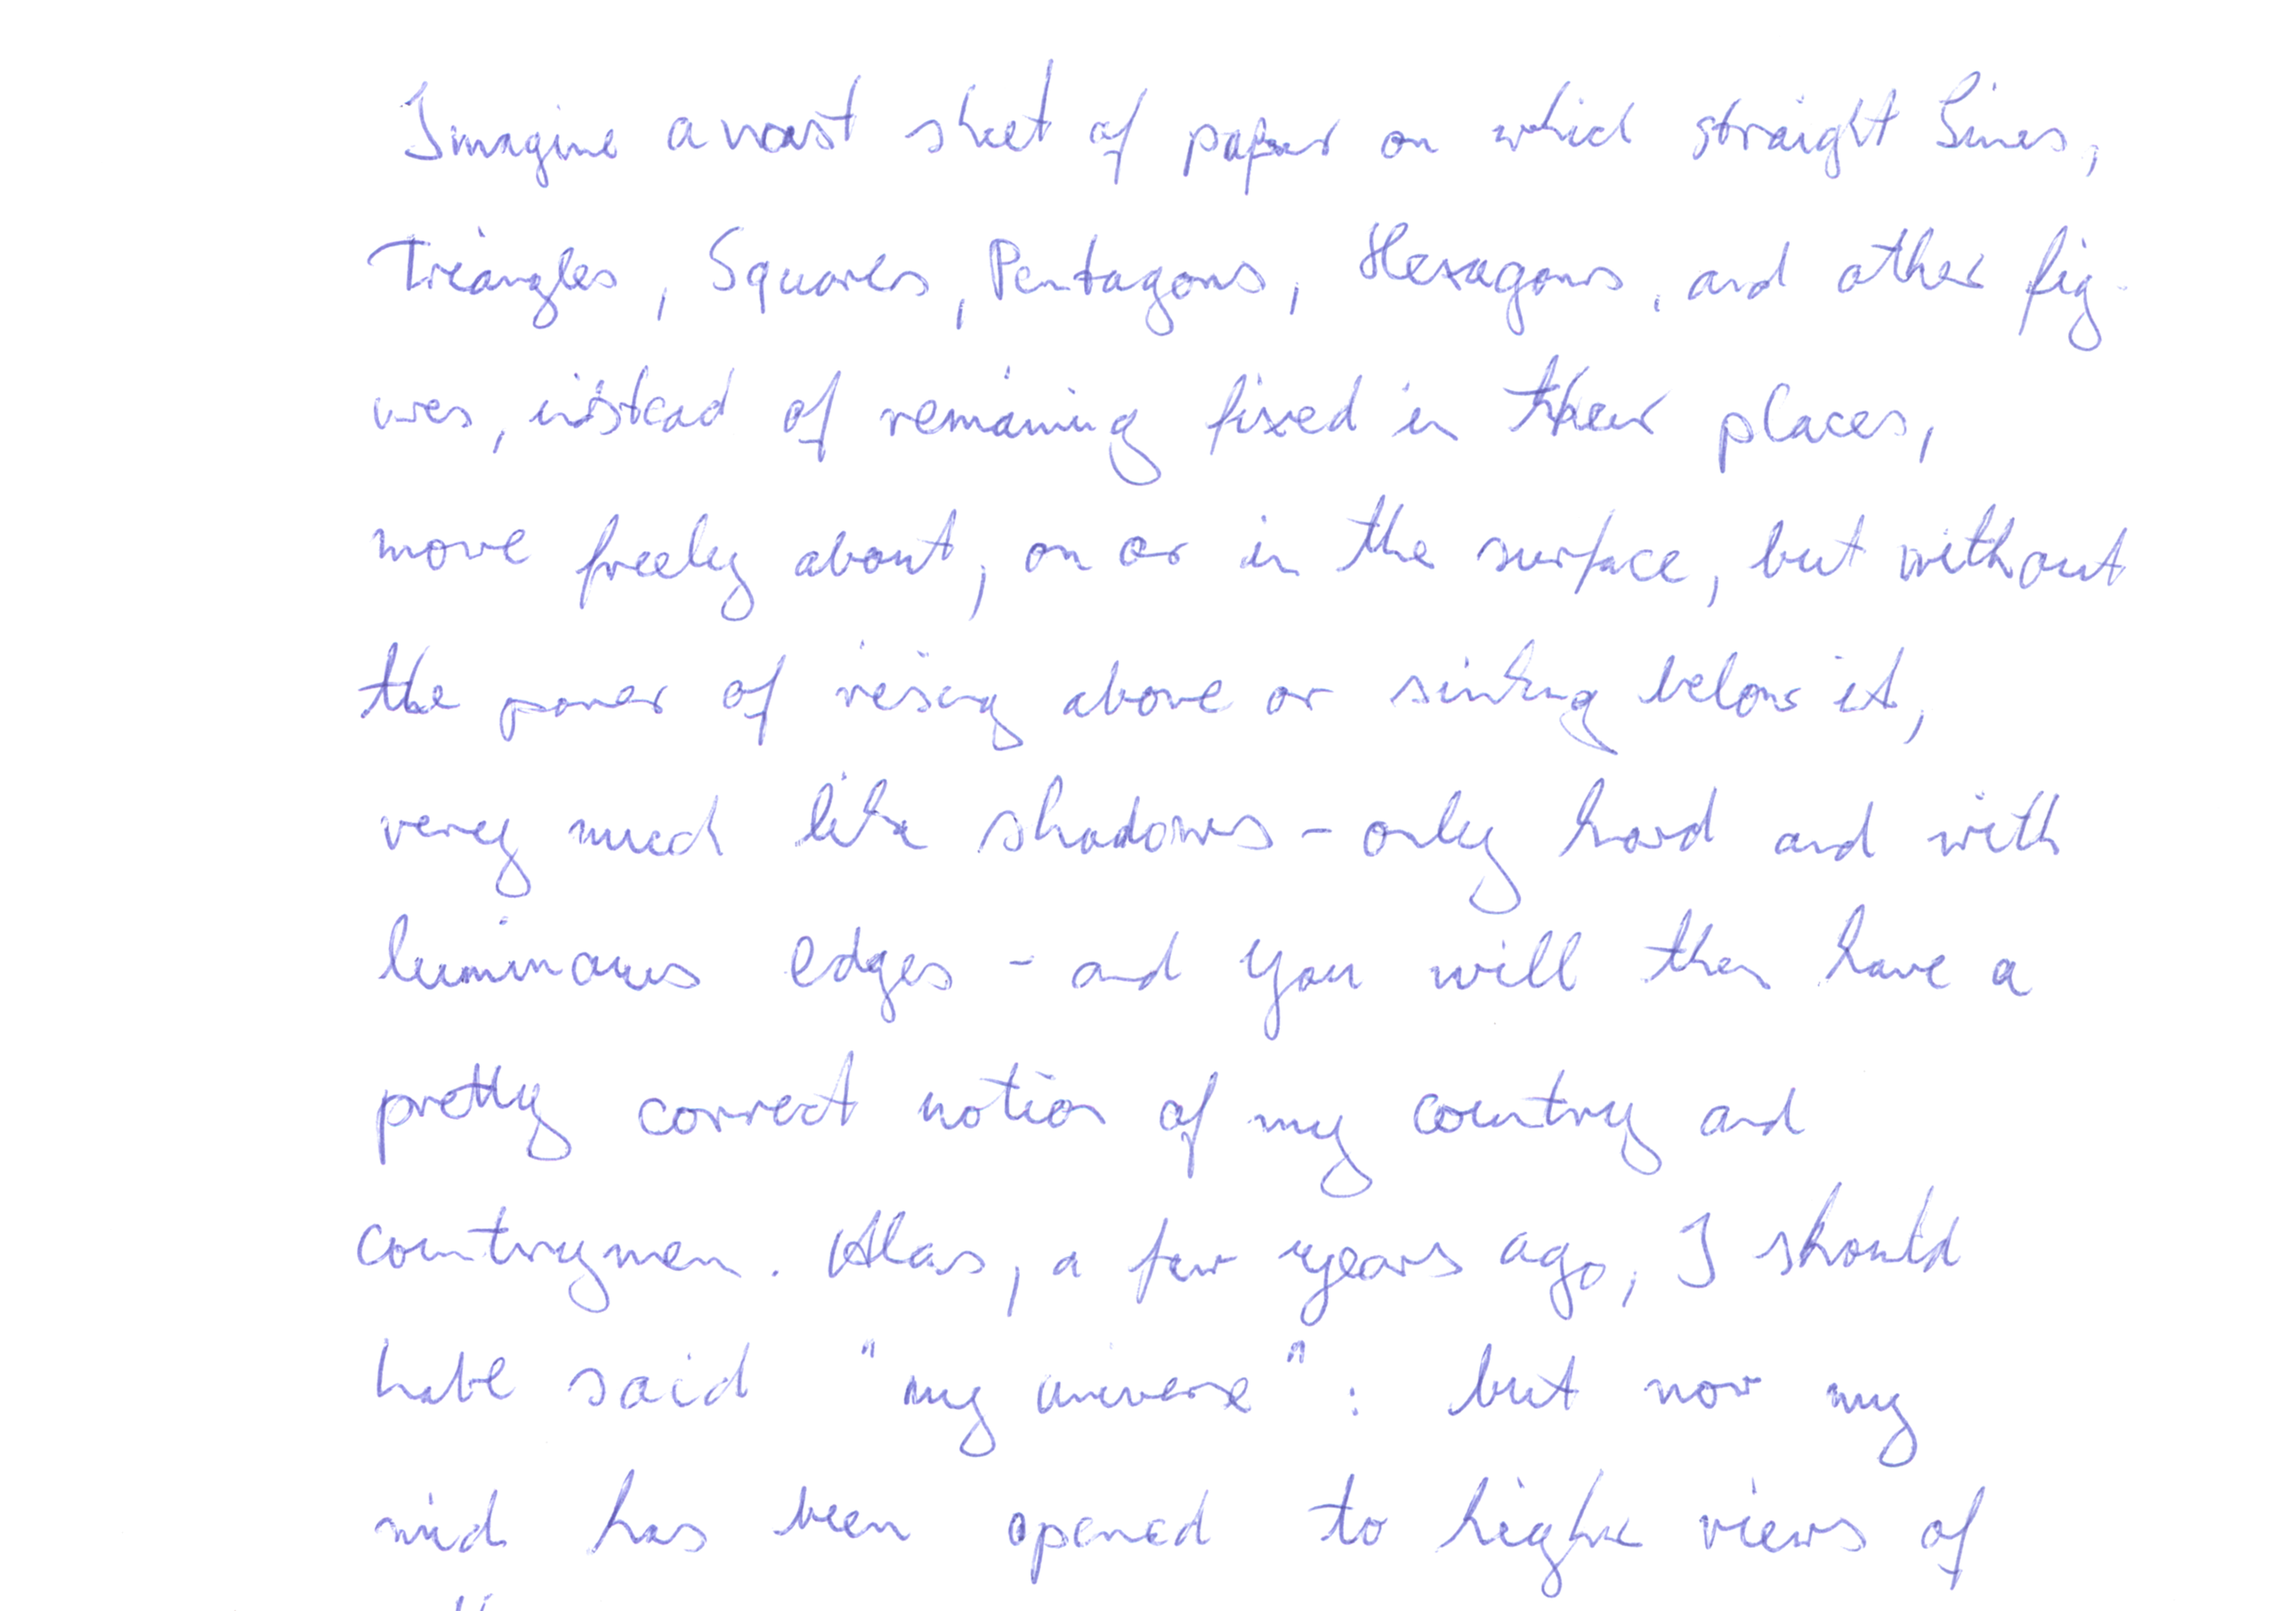 Imagine a vast sheet of paper on which straight Lines,
Triangles, Squares, Pentagons, Hexagons, and other fig-
ures, instead of remaining fixed in their places,
move freely about, on or in the surface, but without
the power of rising above or sinking below it,
very much like shadows - only hard and with
luminous edges - and you will then have a
pretty correct notion of my country and
countrymen. Alas, a few years ago, I should
have said "my universe": but now my
mind has been opened to higher views of